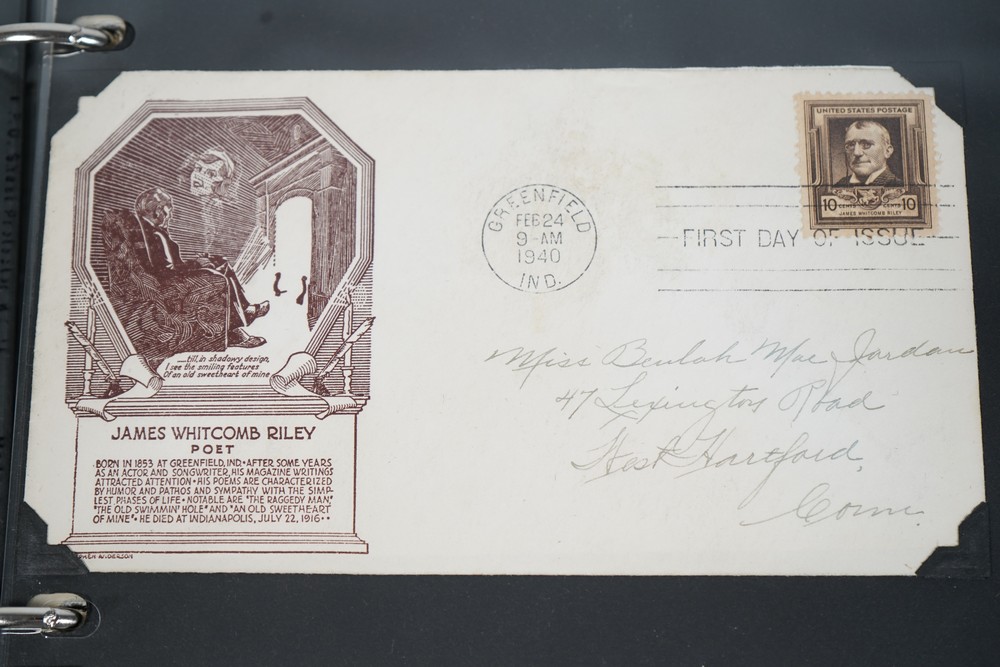 UNITED STATES POSTAGE
10 CENTS CENTS 10
JAMES WHITCOMB RILEY
GREENFIELD
FEB 24
9-AM
1940
IND.
FIRST DAY OF ISSUE
....till, in shadowy design,
I see the smiling features
Of an old sweetheart of mine
JAMES WHITCOMB RILEY
POET
BORN IN 1853 AT GREENFIELD, IND•AFTER SOME YEARS
AS AN ACTOR AND SONGWRITER, HIS MAGAZINE WRITINGS
ATTRACTED ATTENTION•HIS POEMS ARE CHARACTERIZED
BY HUMOR AND PATHOS AND SYMPATHY WITH THE SIMP-
LEST PHASES OF LIFE•NOTABLE ARE "THE RAGGEDY MAN,"
"THE OLD SWIMMIN' HOLE" AND "AN OLD SWEETHEART
OF MINE"•HE DIED AT INDIANAPOLIS, JULY 22, 1916••
Miss Beulah Mae Jordan
47 Lexington Road
West Hartford,
Conn.